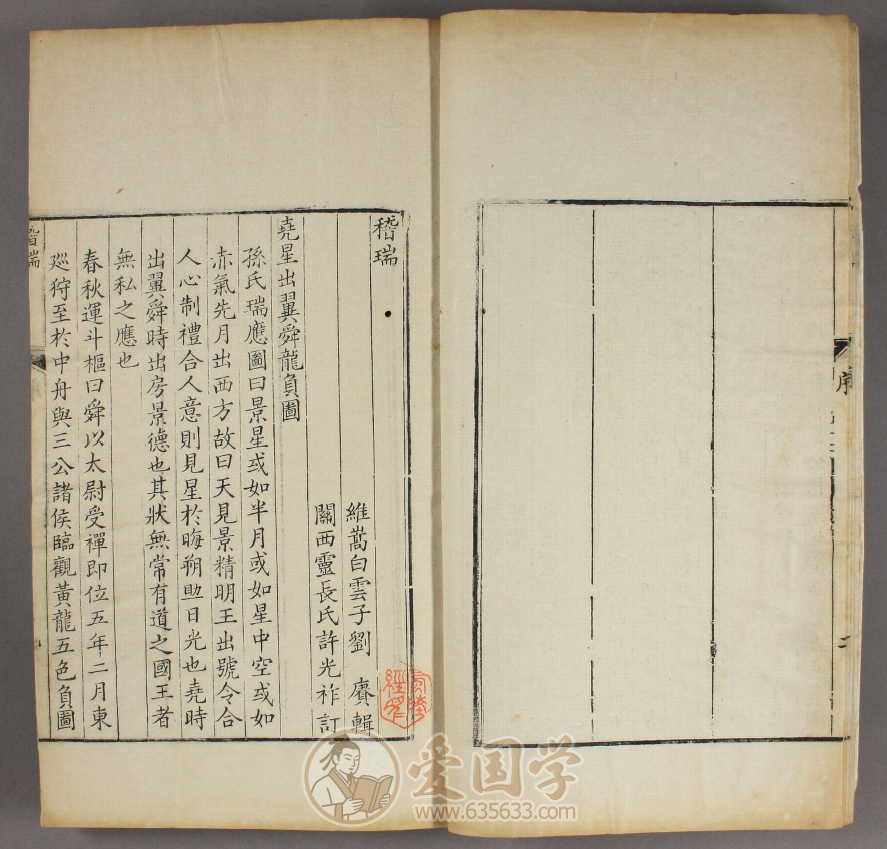 序
稽瑞
維嵩白雲子劉 賡輯
關西靈長氏許光祚訂
堯星出翼舜龍負圖
孫氏瑞應圖曰景星或如半月或如星中空或如
赤氣先月出西方故曰天見景精明王出號令合
人心制禮合人意則見星於晦朔助日光也堯時
出翼舜時出房景德也其狀無常有道之國王者
無私之應也
春秋運斗樞曰舜以太尉受禪即位五年二月東
廵狩至於中舟與三公諸侯臨觀黃龍五色負圖
稽瑞
爱国学
www.635633.com